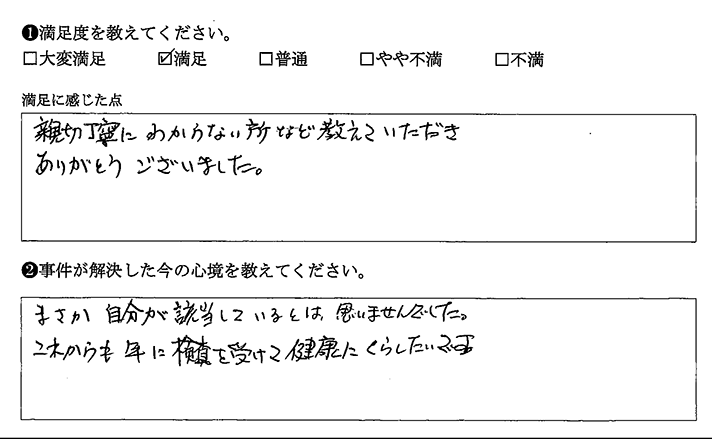 ❶満足度を教えてください。
□大変満足 ☑満足 □普通 □やや不満 □不満
満足に感じた点
親切丁寧に わからない所など教えていただき
ありがとう ございました。
❷事件が解決した今の心境を教えてください。
まさか 自分が該当しているとは、思いませんでした。
これからも 年に 検査を受けて 健康に くらしたいです